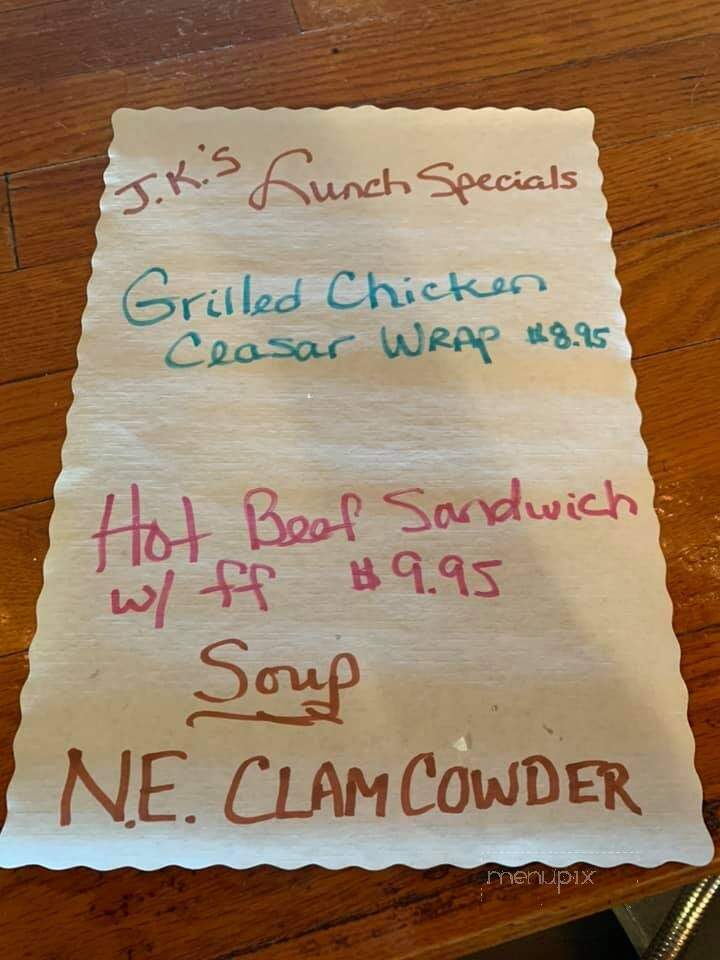 J.K.'s Lunch Specials
Grilled Chicken
Ceasar WRAP $8.95
Hot Beef Sandwich
w/ ff $9.95
Soup
N.E. CLAM COWDER
menupix